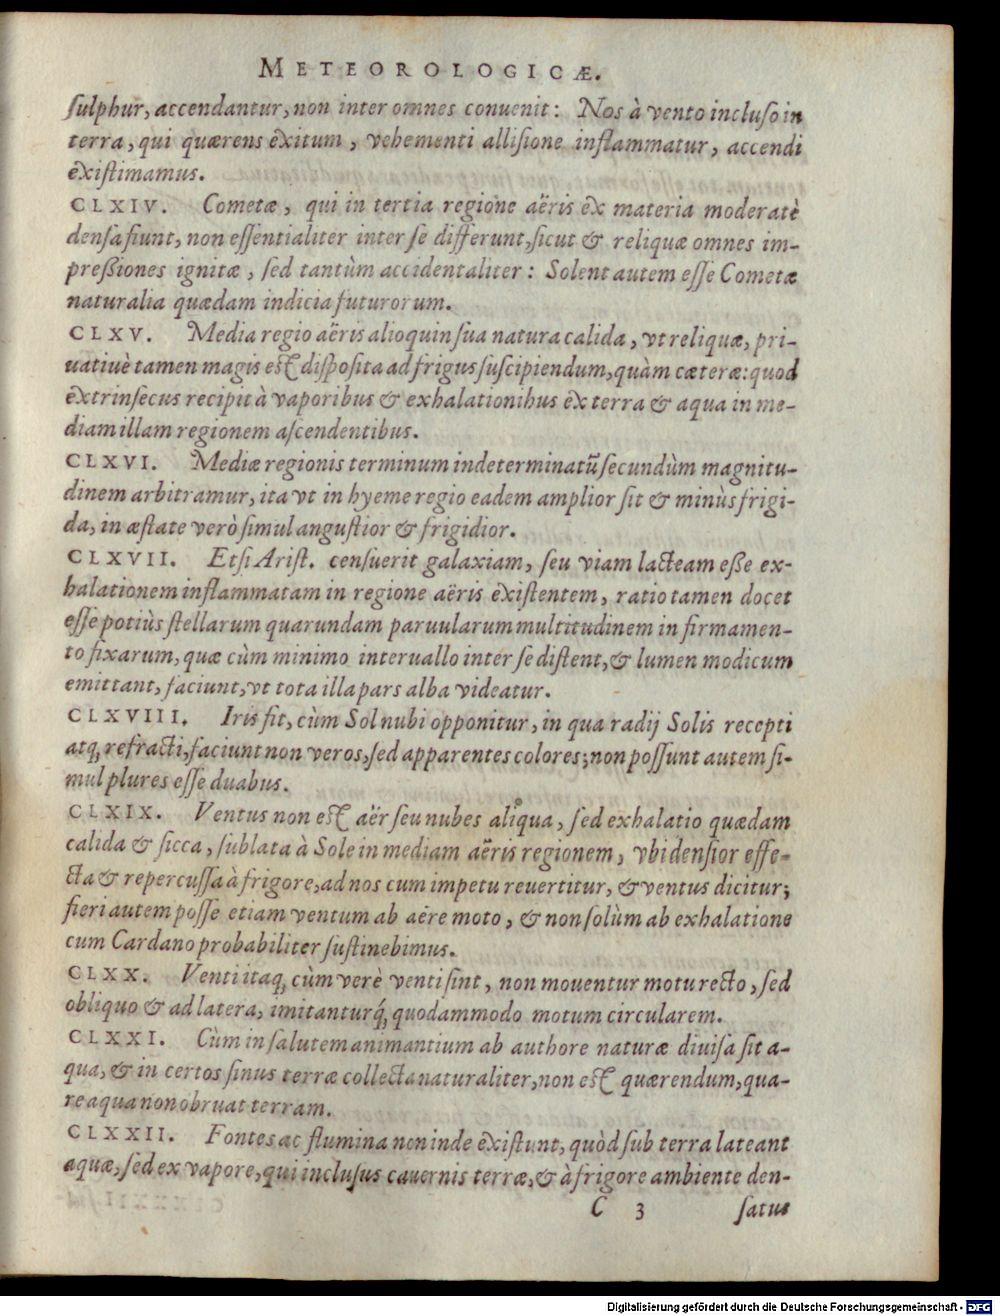 METEOROLOGICÆ.
sulphur, accendantur, non inter omnes conuenit: Nos à vento incluso in
terra, qui quærens exitum, vehementi allisione inflammatur, accendi
existimamus.
CLXIV. Cometæ, qui in tertia regione aëris ex materia moderatè
densa fiunt, non essentialiter inter se differunt, sicut & reliquæ omnes im-
preßiones ignitæ, sed tantùm accidentaliter: Solent autem esse Cometæ
naturalia quædam indicia futurorum.
CLXV. Media regio aëris alioquin sua natura calida, vt reliquæ, pri-
uatiuè tamen magis est disposita ad frigus suscipiendum, quàm cæteræ: quod
extrinsecus recipit à vaporibus & exhalationibus ex terra & aqua in me-
diam illam regionem ascendentibus.
CLXVI. Mediæ regionis terminum indeterminatũ secundùm magnitu-
dinem arbitramur, ita vt in hyeme regio eadem amplior sit & minùs frigi-
da, in æstate verò simul angustior & frigidior.
CLXVII. Etsi Arist. censuerit galaxiam, seu viam lacteam eße ex-
halationem inflammatam in regione aëris existentem, ratio tamen docet
esse potiùs stellarum quarundam paruularum multitudinem in firmamen-
to fixarum, quæ cùm minimo interuallo inter se distent, & lumen modicum
emittant, faciunt, vt tota illa pars alba videatur.
CLXVIII. Iris fit, cùm Sol nubi opponitur, in qua radij Solis recepti
atq; refracti, faciunt non veros, sed apparentes colores; non possunt autem si-
mul plures esse duabus.
CLXIX. Ventus non est aër seu nubes aliqua, sed exhalatio quædam
calida & sicca, sublata à Sole in mediam aëris regionem, vbi densior effe-
cta & repercussa à frigore, ad nos cum impetu reuertitur, & ventus dicitur;
fieri autem posse etiam ventum ab aëre moto, & non solùm ab exhalatione
cum Cardano probabiliter sustinebimus.
CLXX. Venti itaq; cùm verè venti sint, non mouentur motu recto, sed
obliquo & ad latera, imitanturq́; quodammodo motum circularem.
CLXXI. Cùm in salutem animantium ab authore naturæ diuisa sit a-
qua, & in certos sinus terræ collecta naturaliter, non est quærendum, qua-
re aqua non obruat terram.
CLXXII. Fontes ac flumina non inde existunt, quòd sub terra lateant
aquæ, sed ex vapore, qui inclusus cauernis terræ, & à frigore ambiente den-
C 3 satus
Digitalisierung gefördert durch die Deutsche Forschungsgemeinschaft - DFG